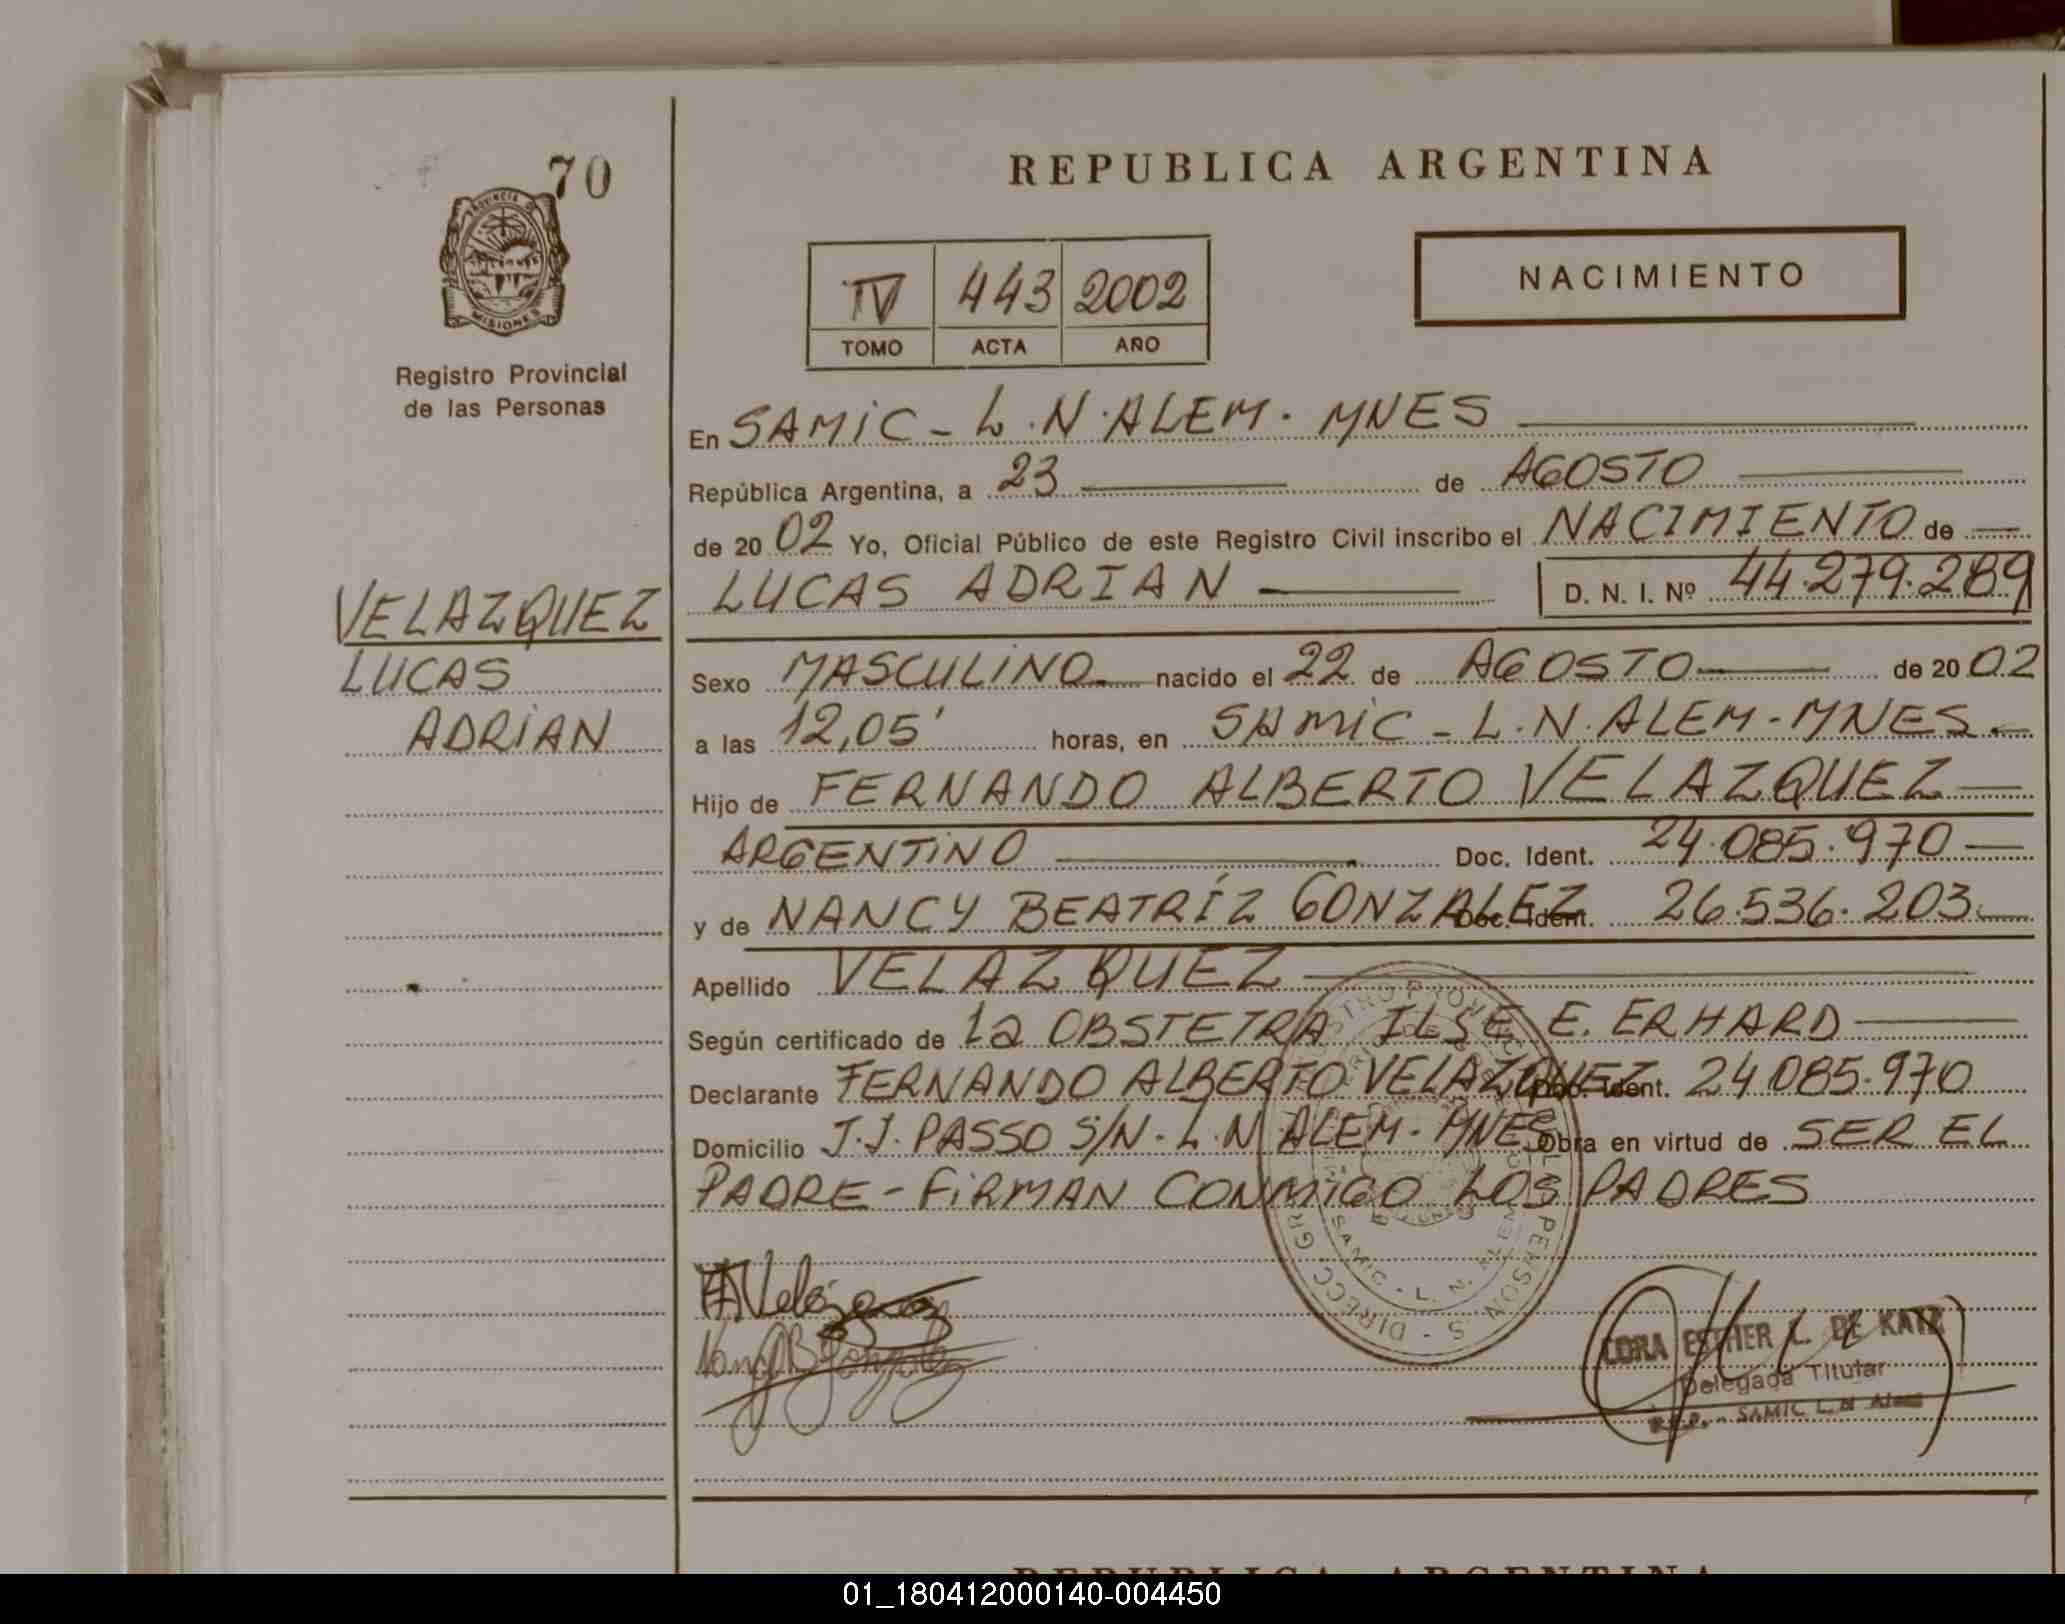 70
PROVINCIA D
MISIONES
Registro Provincial
de las Personas
VELAZQUEZ
LUCAS
ADRIAN
REPUBLICA ARGENTINA
IV 443 2002
TOMO ACTA AÑO
NACIMIENTO
En SAMIC - L.N. ALEM. MNES
República Argentina, a 23 de AGOSTO
de 20 02 Yo, Oficial Público de este Registro Civil inscribo el NACIMIENTO de
LUCAS ADRIAN D. N. I. Nº 44.279.289
Sexo MASCULINO nacido el 22 de AGOSTO de 20 02
a las 12,05' horas, en SAMIC - L.N. ALEM - MNES.
Hijo de FERNANDO ALBERTO VELAZQUEZ
ARGENTINO Doc. Ident. 24.085.970
y de NANCY BEATRÍZ GONZALEZ Doc. Ident. 26.536.203
Apellido VELAZQUEZ
Según certificado de la OBSTETRA ILSE E. ERHARD
Declarante FERNANDO ALBERTO VELAZQUEZ Doc. Ident. 24.085.970
Domicilio J.J. PASSO S/N - L.N. ALEM - MNES Obra en virtud de SER EL
PADRE - FIRMAN CONMIGO LOS PADRES
FAVelázquez
Nancy B Gonzalez
SAMIC - L. N.
ESTHER L. DE KATZ
Delegada Titular
SAMIC L. N Alem
REPUBLICA ARGENTINA
01_180412000140-004450